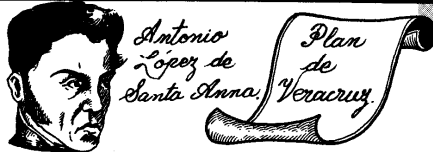 Antonio
López de
Santa Anna.
Plan
de
Veracruz.